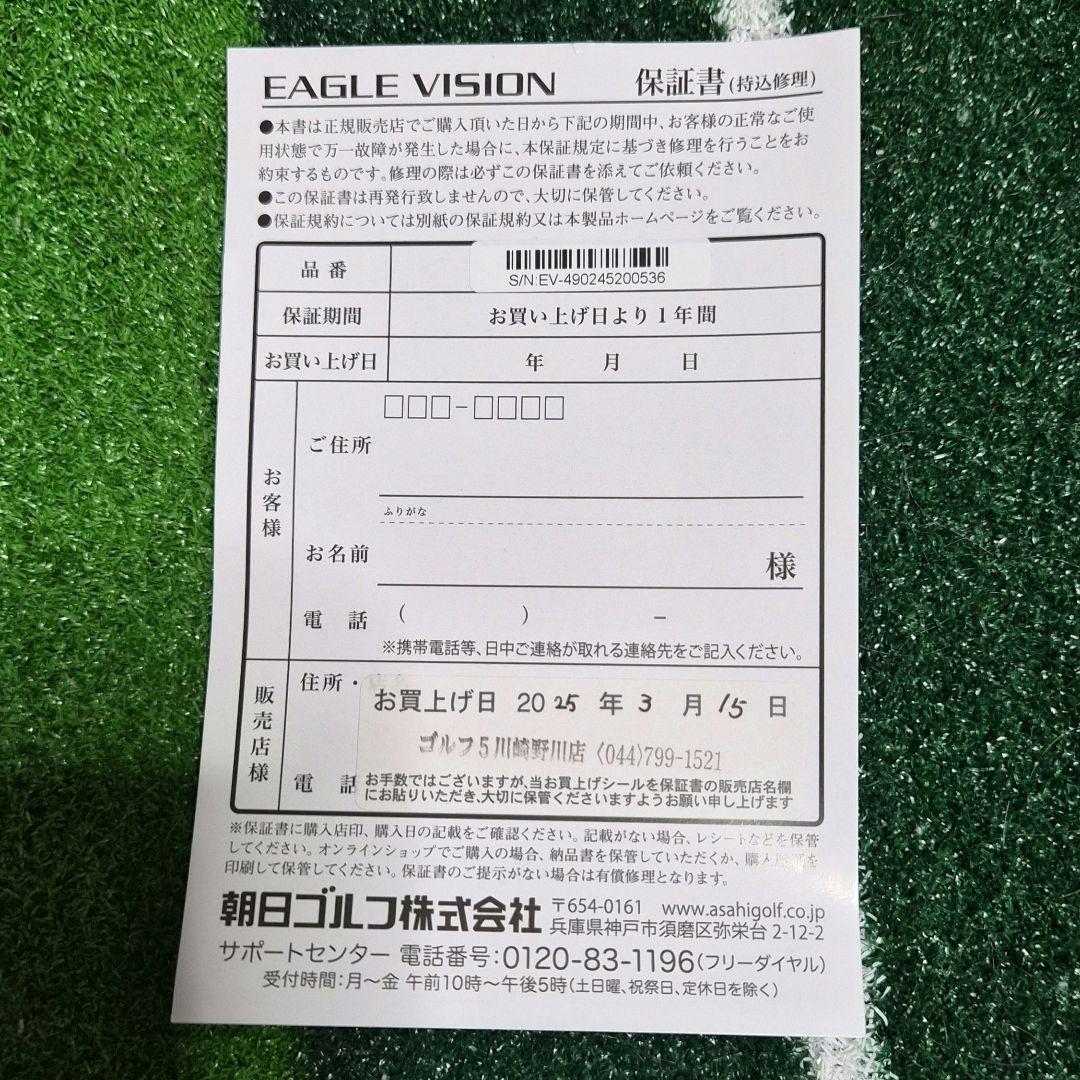 EAGLE VISION 保証書(持込修理)
●本書は正規販売店でご購入頂いた日から下記の期間中、お客様の正常なご使
用状態で万一故障が発生した場合に、本保証規定に基づき修理を行うことをお
約束するものです。修理の際は必ずこの保証書を添えてご依頼ください。
●この保証書は再発行致しませんので、大切に保管してください。
●保証規約については別紙の保証規約又は本製品ホームページをご覧ください。
品番
S/N:EV-490245200536
保証期間 お買い上げ日より1年間
お買い上げ日 年 月 日
お客様
□□□-□□□□
ご住所
ふりがな
お名前 様
電話 ( ) −
※携帯電話等、日中ご連絡が取れる連絡先をご記入ください。
販売店様
住所・
お買上げ日 2025 年 3 月 15 日
ゴルフ5川崎野川店 〈044〉799-1521
電話
お手数ではございますが、当お買上げシールを保証書の販売店名欄
にお貼りいただき、大切に保管くださいますようお願い申し上げます
※保証書に購入店印、購入日の記載をご確認ください。記載がない場合、レシートなどを保管
してください。オンラインショップでご購入の場合、納品書を保管していただくか、購入を
印刷して保管してください。保証書のご提示がない場合は有償修理となります。
朝日ゴルフ株式会社 〒654-0161 www.asahigolf.co.jp
兵庫県神戸市須磨区弥栄台 2-12-2
サポートセンター 電話番号:0120-83-1196(フリーダイヤル)
受付時間:月〜金 午前10時〜午後5時(土日曜、祝祭日、定休日を除く)